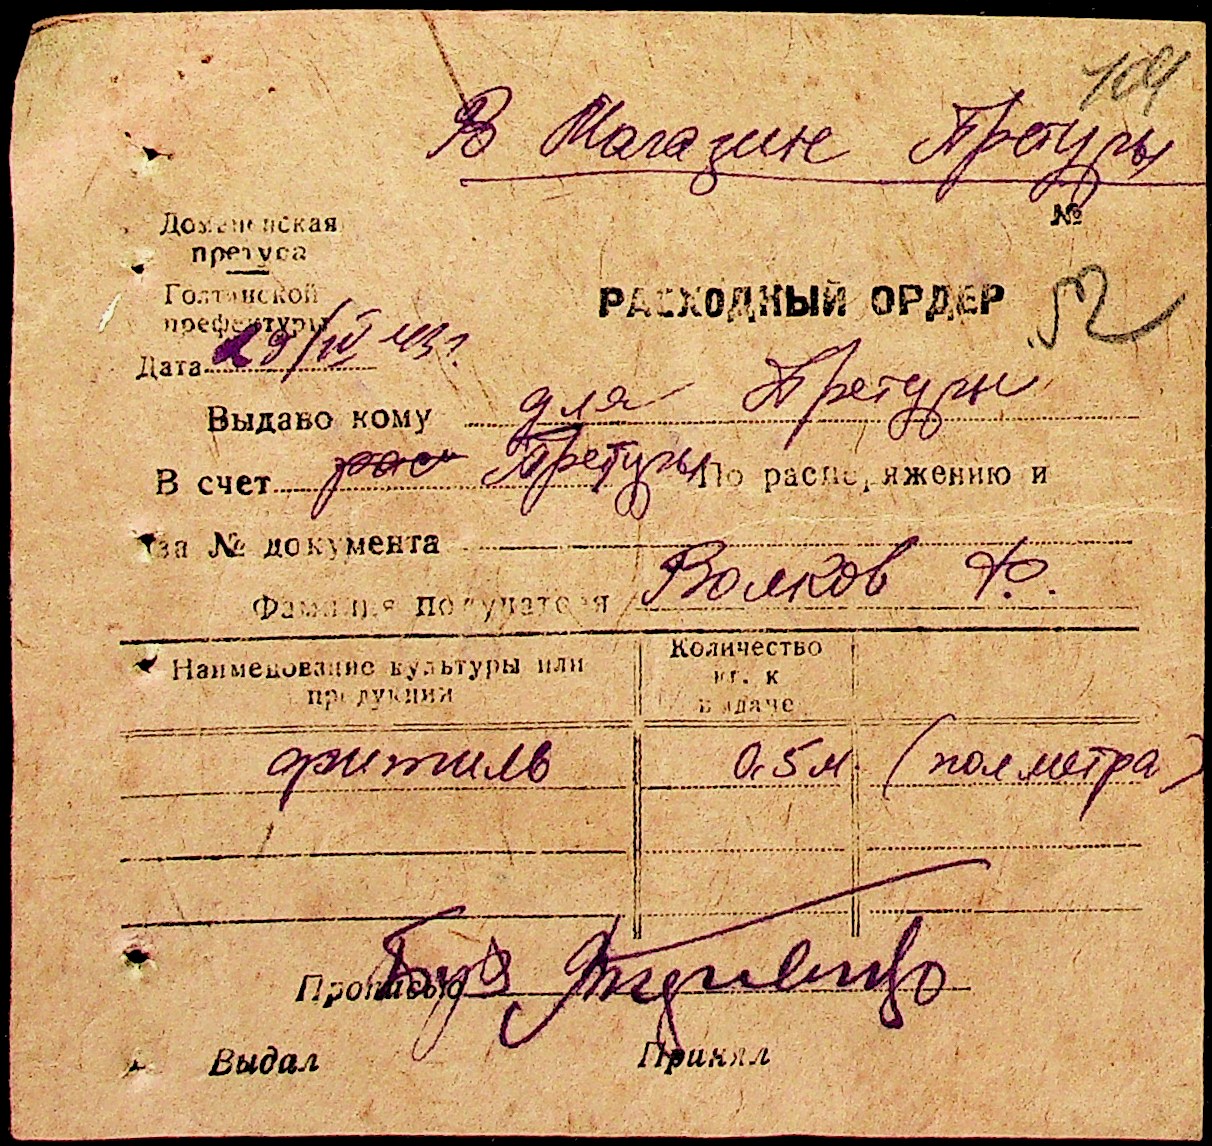 104
В Магазине Претуры
№
Доманевская
претура
Голтянской
префектуры
РАСХОДНЫЙ ОРДЕР 52
Дата 29/IV 43 г.
Выдано кому для Претуры
В счет Претуры По распоряжению и
за № документа
Фамилия получателя Волков Ф.
Наименование культуры или
продукции
Количество
кг. к
выдаче
фитиль 0,5 м. (полметра)
Прописью Бух.
Выдал Принял